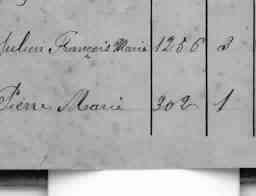 Julien François Marie 1256 3
Pierre Marie 302 1